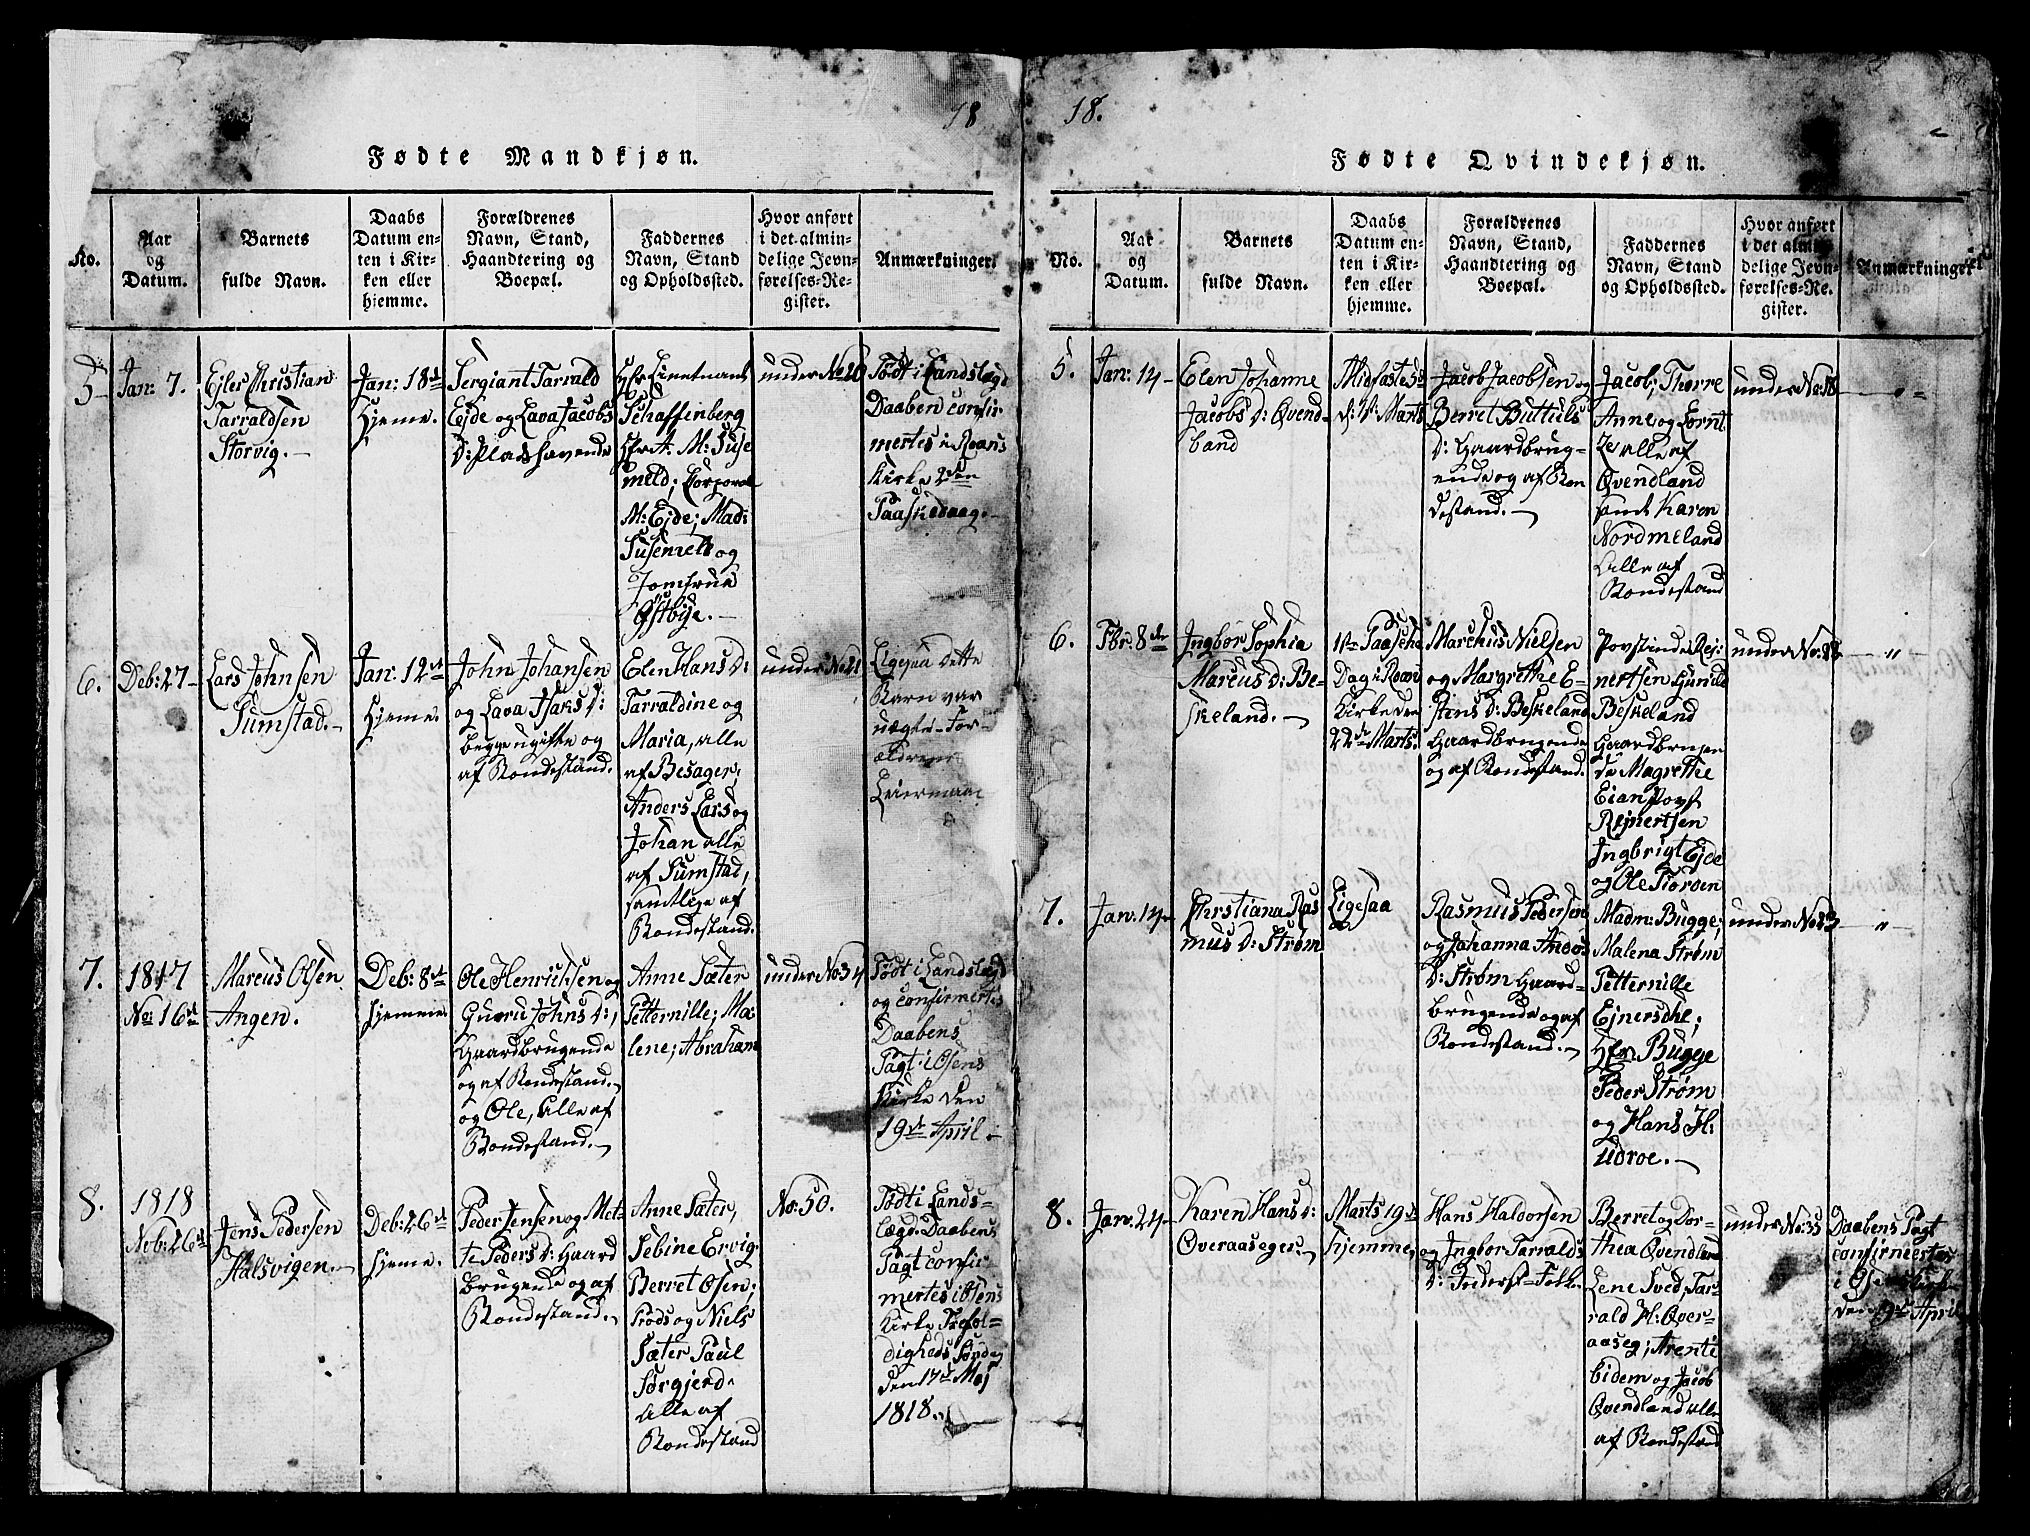 18
Fødte Mandkjøn.
No.
Aar
og
Datum.
Barnets
fulde Navn.
Daabs
Datum en-
ten i Kir-
ken eller
hjemme.
Forældrenes
Navn, Stand,
Haandtering og
Boepæl.
Faddernes
Navn, Stand
og Opholdssted.
Hvor anført
i det almin-
delige Jevn-
førelses-Re-
gister.
Anmærkninger.
5
Jan: 7.
Ejler Christian
Tarraldsen
Storvig.
Jan: 18de
Hjeme.
Sergiant Tarrald
Eide og Lava Jacobs
D: Pladshavende
Hr Lieutnant
Schaffenberg
Hr A: M: Suse
meld; Corporal
M: Ejde; Mad:
Susemelt og
Jomfrue
Østbye.
under No 20
Født i Landsleyd
Daaben confir
mertes i Roans
Kirke 2den
Paaskedaag.
6.
Deb: 27
Lars Johnsen
Sumstad.
Jan: 12te
Hjeme.
John Johansen
og Lava Isaks D:
begge ugifte og
af Bondestand.
Elen Hans D:
Tarraldine og
Maria, alle
af Besager,
Anders Lars og
Johan alle
af Sumstad,
samtlige af
Bondestand.
under No 21
Ligesaa dette
Barn var
uægte For-
ældrene
Leiermaal
7.
1817
No: 16de
Marcus Olsen
Angen.
Deb: 8de
hjemme
Ole Henrichsen og
Guru Johns D:,
Gaardbrugende
og af Bondestand.
og Ole, alle af
Bondestand.
Anne Sæter
Petternille; Ma-
lene; Abraham
under No 34
Født i Landsleyd
og confirmertes
Daabens
Pagt i Osens
Kirke den
19de April
8.
1818
Nob: 26de
Jens Pedersen
Halsvigen.
Deb: 26de
hjeme.
Peder Jensen og Met-
te Peders D: Gaard
brugende og af
Bondestand.
Anne Sæter,
Sebine Ervig
Berret Osen;
Trods og Niels
Sæter Paul
Sørgjerd.
Alle af
Bondestand
No: 50.
Født i Lands-
lægd. Daabens
Pagt confir-
mertes i Osens
Kirke Trefol-
digheds Søndag
den 17de Maj
1818.
18.
Fødte Qvindekjøn.
No.
Aar
og
Datum.
Barnets
fulde Navn.
Daabs
Datum en-
ten i Kir-
ken eller
hjemme.
Forældrenes
Navn, Stand,
Haandtering og
Boepæl.
Faddernes
Navn, Stand
og Opholdssted.
Hvor anført
i det almin-
delige Jevn-
førelses-Re-
gister.
Anmærkninger
5.
Jan: 14
Elen Johanne
Jacobs D: Qvend-
land
Midfaste S:
D: D: Marts
Jacob Jacobsen og
Berret Buttuls
D: Gaardbrug-
ende og af Bon
destand.
Jacob, Thorre
Anne og Lornt
Ze alle af
Qvendland
samt Karen
Nordmeland
Alle af
Bondestand
under No: 18
"
6.
Fbr: 8de
Ingbor Sophia
Marcus D: Be-
skeland.
1te Paasche
Dag i Roans
Kirke den
22de Marts.
Marchus Nielsen
og Margrethe E-
stens D: Beskeland
Gaardbrugende
og af Bondestand.
Povst Rej:
nertsen
Beskeland
Gaardbrugen
de Magrethe
Eian Povst
Rejnertsen
Ingbrigt Ejde
og Ole Storøen
under No: 22
"
7.
Jan: 14
Christiana Ras
mus D: Strøm
Ligesaa
Rasmus Pedersen
og Johanna Anders
D: Strøm Gaard-
brugende og af
Bondestand.
Madm: Bugge;
Malena Strøm
Petternille
Ejnersdhl;
Hr Bugge
Peder Strøm
og Hans H:
Udroe.
under No: 23
"
8.
Jan: 24
Karen Hans D:
Overaaseger.
Marts 19de
hjemme
Hans Haldorsen
og Ingbor Tarralds
D: Inderst-Folk.
Berret og Dor-
thea Qvendland
Lene Sved, Tar-
rald H: Over-
aaseg; Arent i
bidem og Jacob
Qvendland alle
af Bondestand
under No: 35
Daabens Pagt
confirmertes
i Osens Kirke
den 19de April